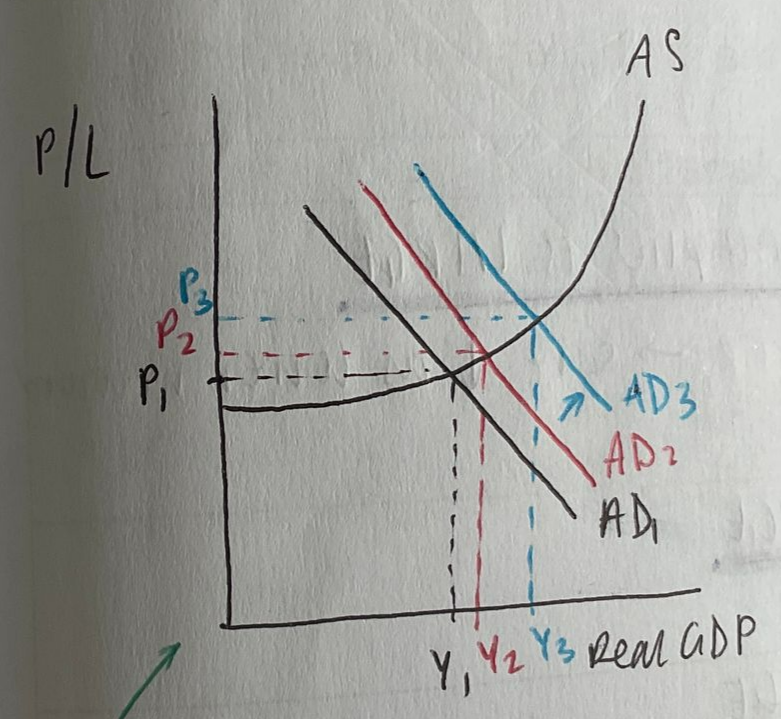 AS
P/L
P3
P2
P1
AD3
AD2
AD1
Y1 Y2 Y3 Real GDP